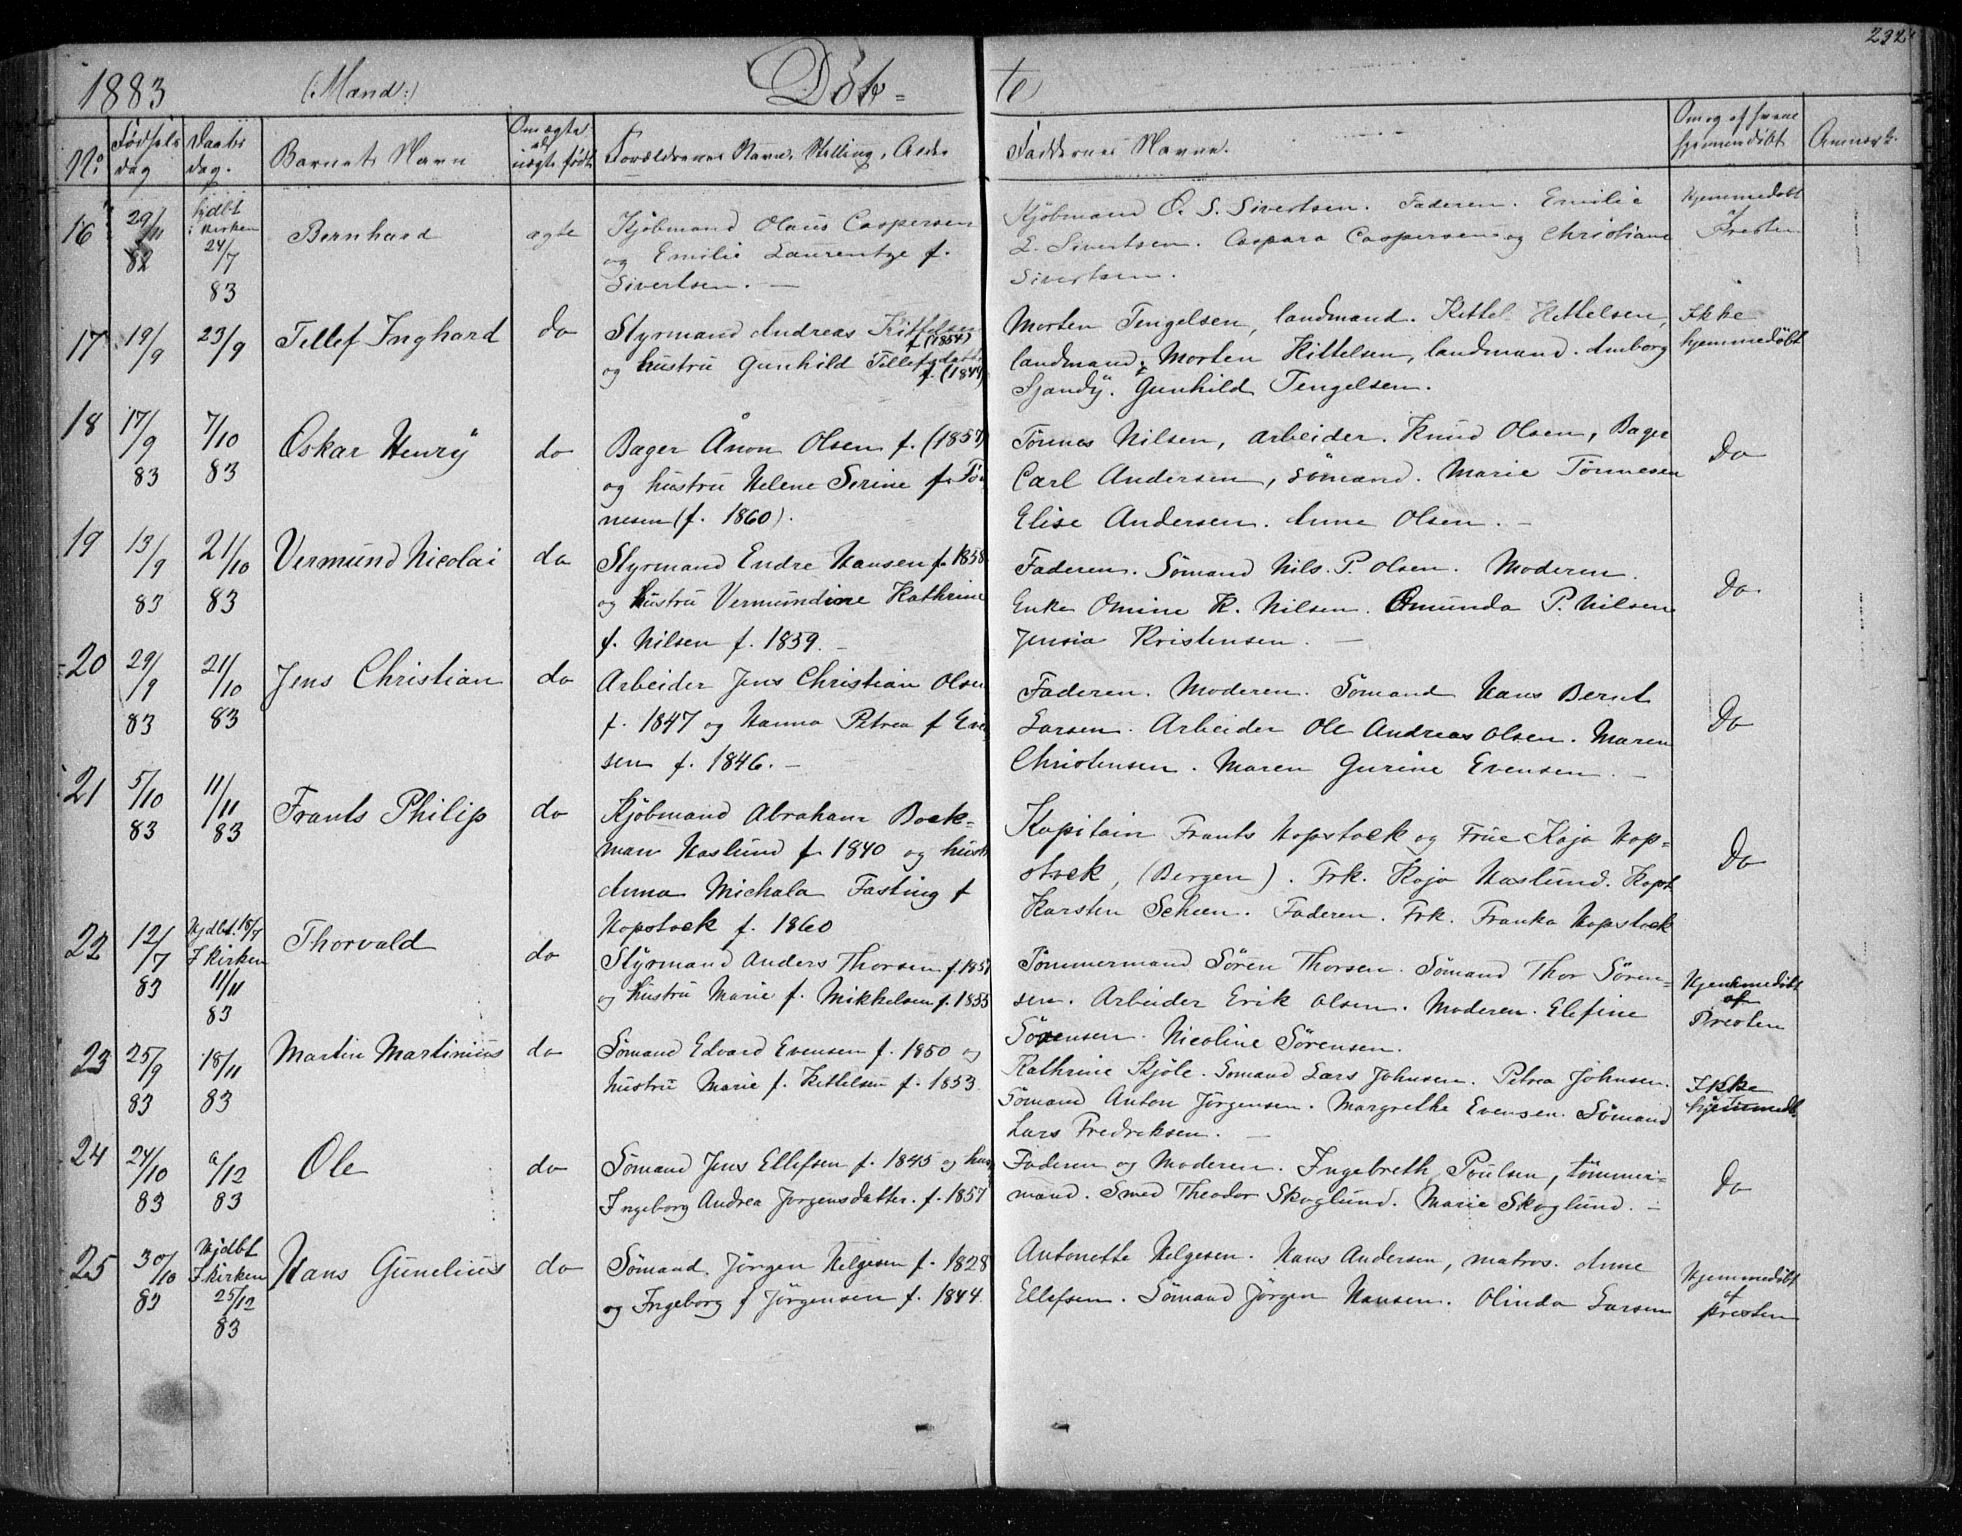 232
1883 (Mænd:) Döb- te
No Fødsels dag Daabs dag. Barnets Navn Om ægte el. uægte født Forældrenes Navn, Stilling, Alder Faddernes Navne. Om og af hvem hjemmedøbt Anmerk.
16 29/11 82 hjdbt i Kirken 24/7 83 Bernhard ægte Kjøbmand Olaus Caspersen
og Emilie Laurentze f.
Sivertsen. —
Kjøbmand O. S. Sivertsen. Faderen. Emilie
L. Sivertsen. Caspara Caspersen og Christiane
Sivertsen.
Hjemmedøbt
af Presten
17 19/9 23/9 Tellef Inghard do Styrmand Andreas Kittelsen
f (1854)
og hustru Gunhild Tellefsdatt
f. (1849
Morten Tengelsen, landmand. Kettel Kettelsen,
landmand. Morten Kittelsen, landmand. Amborg
Sjandÿ. Gunhild Tengelsen.
Ikke
hjemmedøbt
18 17/9 83 7/10 83 Oskar Henrÿ do Bager Ånon Olsen f. (1857)
og hustru Helene Serine f. Tön
nesen (f. 1860).
Tönnes Nilsen, arbeider. Knud Olsen, Bager
Carl Andersen, sömand. Marie Tönnesen
Elise Andersen. Anne Olsen. —
Do
19 13/9 83 21/10 83 Vermund Nicolai do Styrmand Endre Hansen f. 1858
og hustru Vermundine Kathrine
f. Nilsen f. 1859. —
Faderen. Sömand Nils. P. Olsen. Moderen.
Enke Omine K. Nilsen. Omunda P. Nilsen
Jensia Kristensen. —
Do.
20 29/9 83 21/10 83 Jens Christian do Arbeider Jens Christian Olsen
f. 1847 og Hanna Petrea f Eve
sen f. 1846. —
Faderen. Moderen. Sömand Hans Bernt
Larsen. Arbeider Ole Andreas Olsen. Maren
Christensen. Maren Gurine Evensen. —
Do
21 5/10 83 11/11 83 Frants Philip do Kjöbmand Abraham Boek-
man Haslund f. 1840 og hustr
Anna Michala Fasting f
Hopstock f. 1860
Kapitain Frants Hopstock og Frue Kaja Hop-
stock, (Bergen). Frk. Kaja Haslund. Kapt
Karsten Scheen. Faderen. Frk. Franka Hopstock
Do
22 12/7 83 Hjdbt. 18/7 I kirken 11/11 83 Thorvald do Styrmand Anders Thorsen f. 1851
og hustru Marie f. Mikkelsen f. 1855
Tömmermand Sören Thorsen. Sömand Thor Sören-
sen. Arbeider Erik Olsen. Moderen. Elefine
Sörensen. Nicoline Sörensen.
Hjemmedöbt
af
Presten
23 25/9 83 18/11 83 Martin Martinius do Sömand Edvard Evensen f. 1850 og
hustru Marie f. Kettelsen f. 1853.
Kathrine Kjöle. Sömand Lars Johnsen. Petrea Johnsen.
Sömand Anton Jörgensen. Margrethe Evensen. Sömand
Lars Fredriksen. —
Ikke
hjemmedt.
24 24/10 83 /12 83 Ole do Sömand Jens Ellefsen f. 1845 og hus
Ingeborg Andrea Jørgensdatter. f. 1857
Faderen og Moderen. Ingebreth Poulsen, tömmer-
mand. Smed Theodor Skoglund. Marie Skoglund. —
Do
25 30/10 83 Hjdbt I kirken 25/12 83 Hans Gunelius do Sömand. Jörgen Helgesen f. 1828
og Ingeborg f Jörgensen f. 1844.
Antonette Helgesen. Hans Andersen, matros. Anne
Ellefsen. Sömand Jörgen Hansen. Olinda Larsen
Hjemmedöbt
af
presten